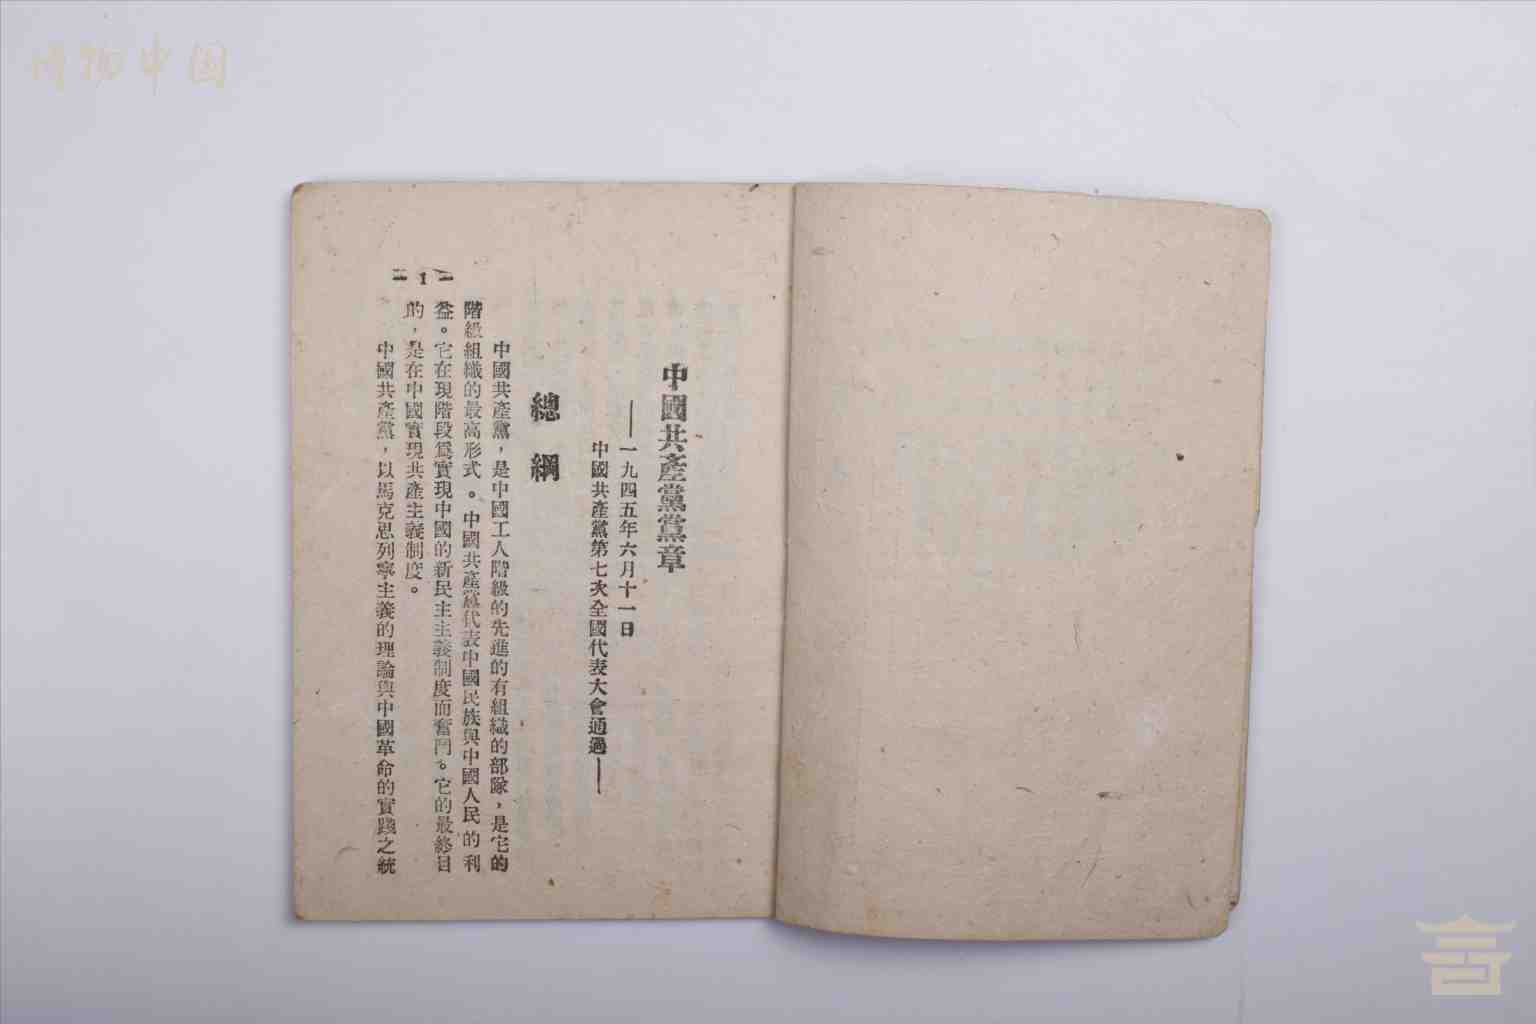 博物中国
中國共產黨黨章
——一九四五年六月十一日
中國共產黨第七次全國代表大會通過——
總綱
中國共產黨，是中國工人階級的先進的有組織的部隊，是它的
階級組織的最高形式。中國共產黨代表中國民族與中國人民的利
益。它在現階段爲實現中國的新民主主義制度而奮鬥。它的最終目
的，是在中國實現共產主義制度。
中國共產黨，以馬克思列寧主義的理論與中國革命的實踐之統
— 1 —